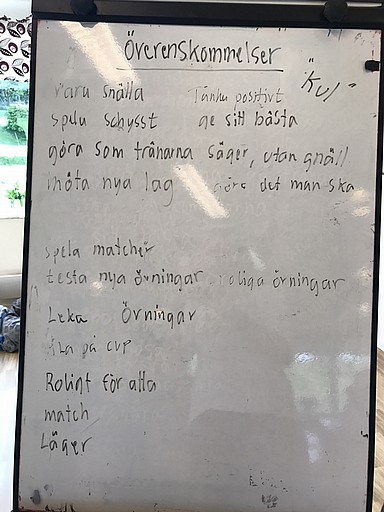 Överenskommelser
"KUL"
vara snälla Tänka positivt
spela schysst ge sitt bästa
göra som tränarna säger, utan gnäll
möta nya lag göra det man ska
spela matcher
testa nya övningar roliga örningar
Leka Örningar
åka på cup
Roligt för alla
match
Läger